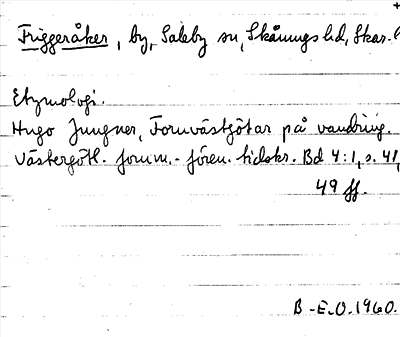 Friggeråker, by, Saleby sn, Skånings hd, Skar.
Etymologi.
Hugo Jungner, Fornvästgötar på vandring.
Västergötl. fornm.-fören. tidskr. Bd 4:1, s. 41,
49 ff.
B-E.O. 1960.